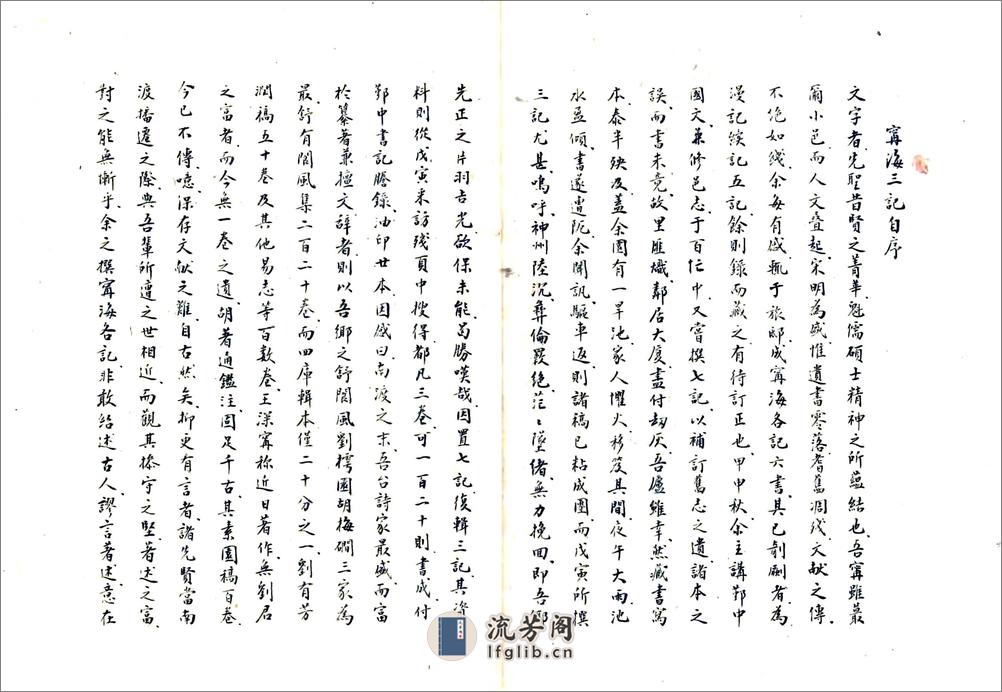 甯海三記自序
文字者先聖昔賢之菁華魁儒碩士精神之所蘊結也吾甯雖蕞
爾小邑而人文叠起宋明為盛惟遺書零落耆舊凋殘文献之傳
不絕如綫余每有感輒于旅邸成甯海各記六書其已剞劂者為
漫記續記五記餘則録而藏之有待訂正也甲申秋余主講鄞中
國文兼修邑志于百忙中又嘗撰七記以補訂舊志之遺諸本之
誤而書未竟故里匪熾鄰居大厦盡付刼灰吾廬雖幸然藏書寫
本泰半殃及蓋余園有一旱池家人懼火移笈其間夜午大雨池
水盈傾書遂遭阨余聞訊驅車返則諸稿已粘成團而戊寅所撰
三記尤甚嗚呼神州陸沉彝倫斁絕茫〻墜緒無力挽回即吾鄉
先正之片羽吉光欲保未能曷勝嘆哉因置七記復輯三記其資
料則從戊寅采訪殘頁中搜得都凡三卷可一百二十則書成付
鄞中書記謄錄油印廿本因感曰南渡之末吾台詩家最盛而富
於纂著兼擅文辭者則以吾鄉之舒閬風劉樗園胡梅磵三家為
最舒有閬風集二百二十卷而四庫輯本僅二十分之一劉有芳
潤稿五十卷及其他易志等百數卷王深甯称近日著作無劉君
之富者而今無一卷之遺胡著通鑑注固足千古其素園稿百卷
今已不傳噫保存文献之難自古然矣抑更有言者諸先賢當南
渡播遷之際與吾輩所遭之世相近而觀其操守之堅著述之富
對之能無慚乎余之撰甯海各記非敢紹述古人謬言著述意在
流芳阁
lfglib.cn